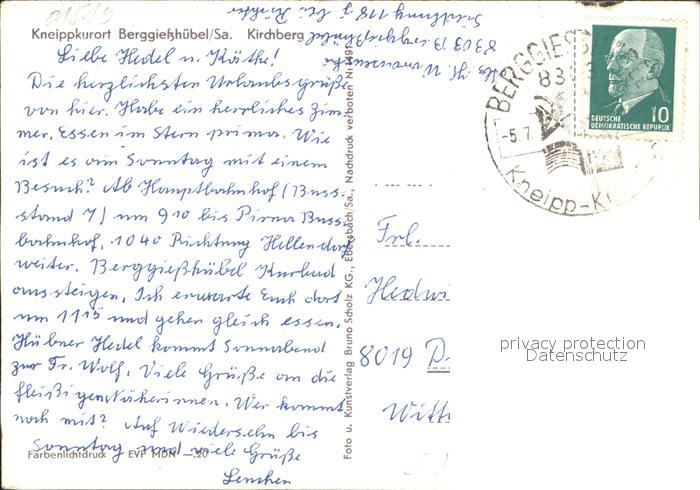 Kneippkurort Berggießhübel/Sa. Kirchberg
Liebe Hedel u. Käthe!
Die herzlichsten Urlaubsgrüße
von hier. Habe ein herrliches Zim-
mer, Essen im Stern prima. Wie
ist es am Sonntag mit einem
Besuch? Ab Hauptbahnhof (Buss-
stand 7) um 9 10 bis Pirna Buss-
bahnhof, 10 40 Richtung Hellendorf
weiter. Berggießhübel Kurbad
aussteigen. Ich erwarte Euch dort
um 11 15 und gehen gleich essen.
Hübner Hedel kommt Sonnabend
zur Fr. Wolf. Viele Grüße an die
fleißigen Näherinnen. Wer kommt
noch mit? Auf Wiedersehn bis
Sonntag und viele Grüße
Lenchen
Farbenlichtdruck EVP MDN —.20
8303 Berggießhübel
Siedlung 118 j bei Richter
Foto u. Kunstverlag Bruno Scholz KG., Ebersbach/Sa., Nachdruck verboten Nr.
BERGGIESSHÜBEL
83
-5.7
Kneipp-K
10
DEUTSCHE
DEMOKRATISCHE REPUBLIK
Frl.
Hedwi
8019 D
Witt
privacy protection
Datenschutz